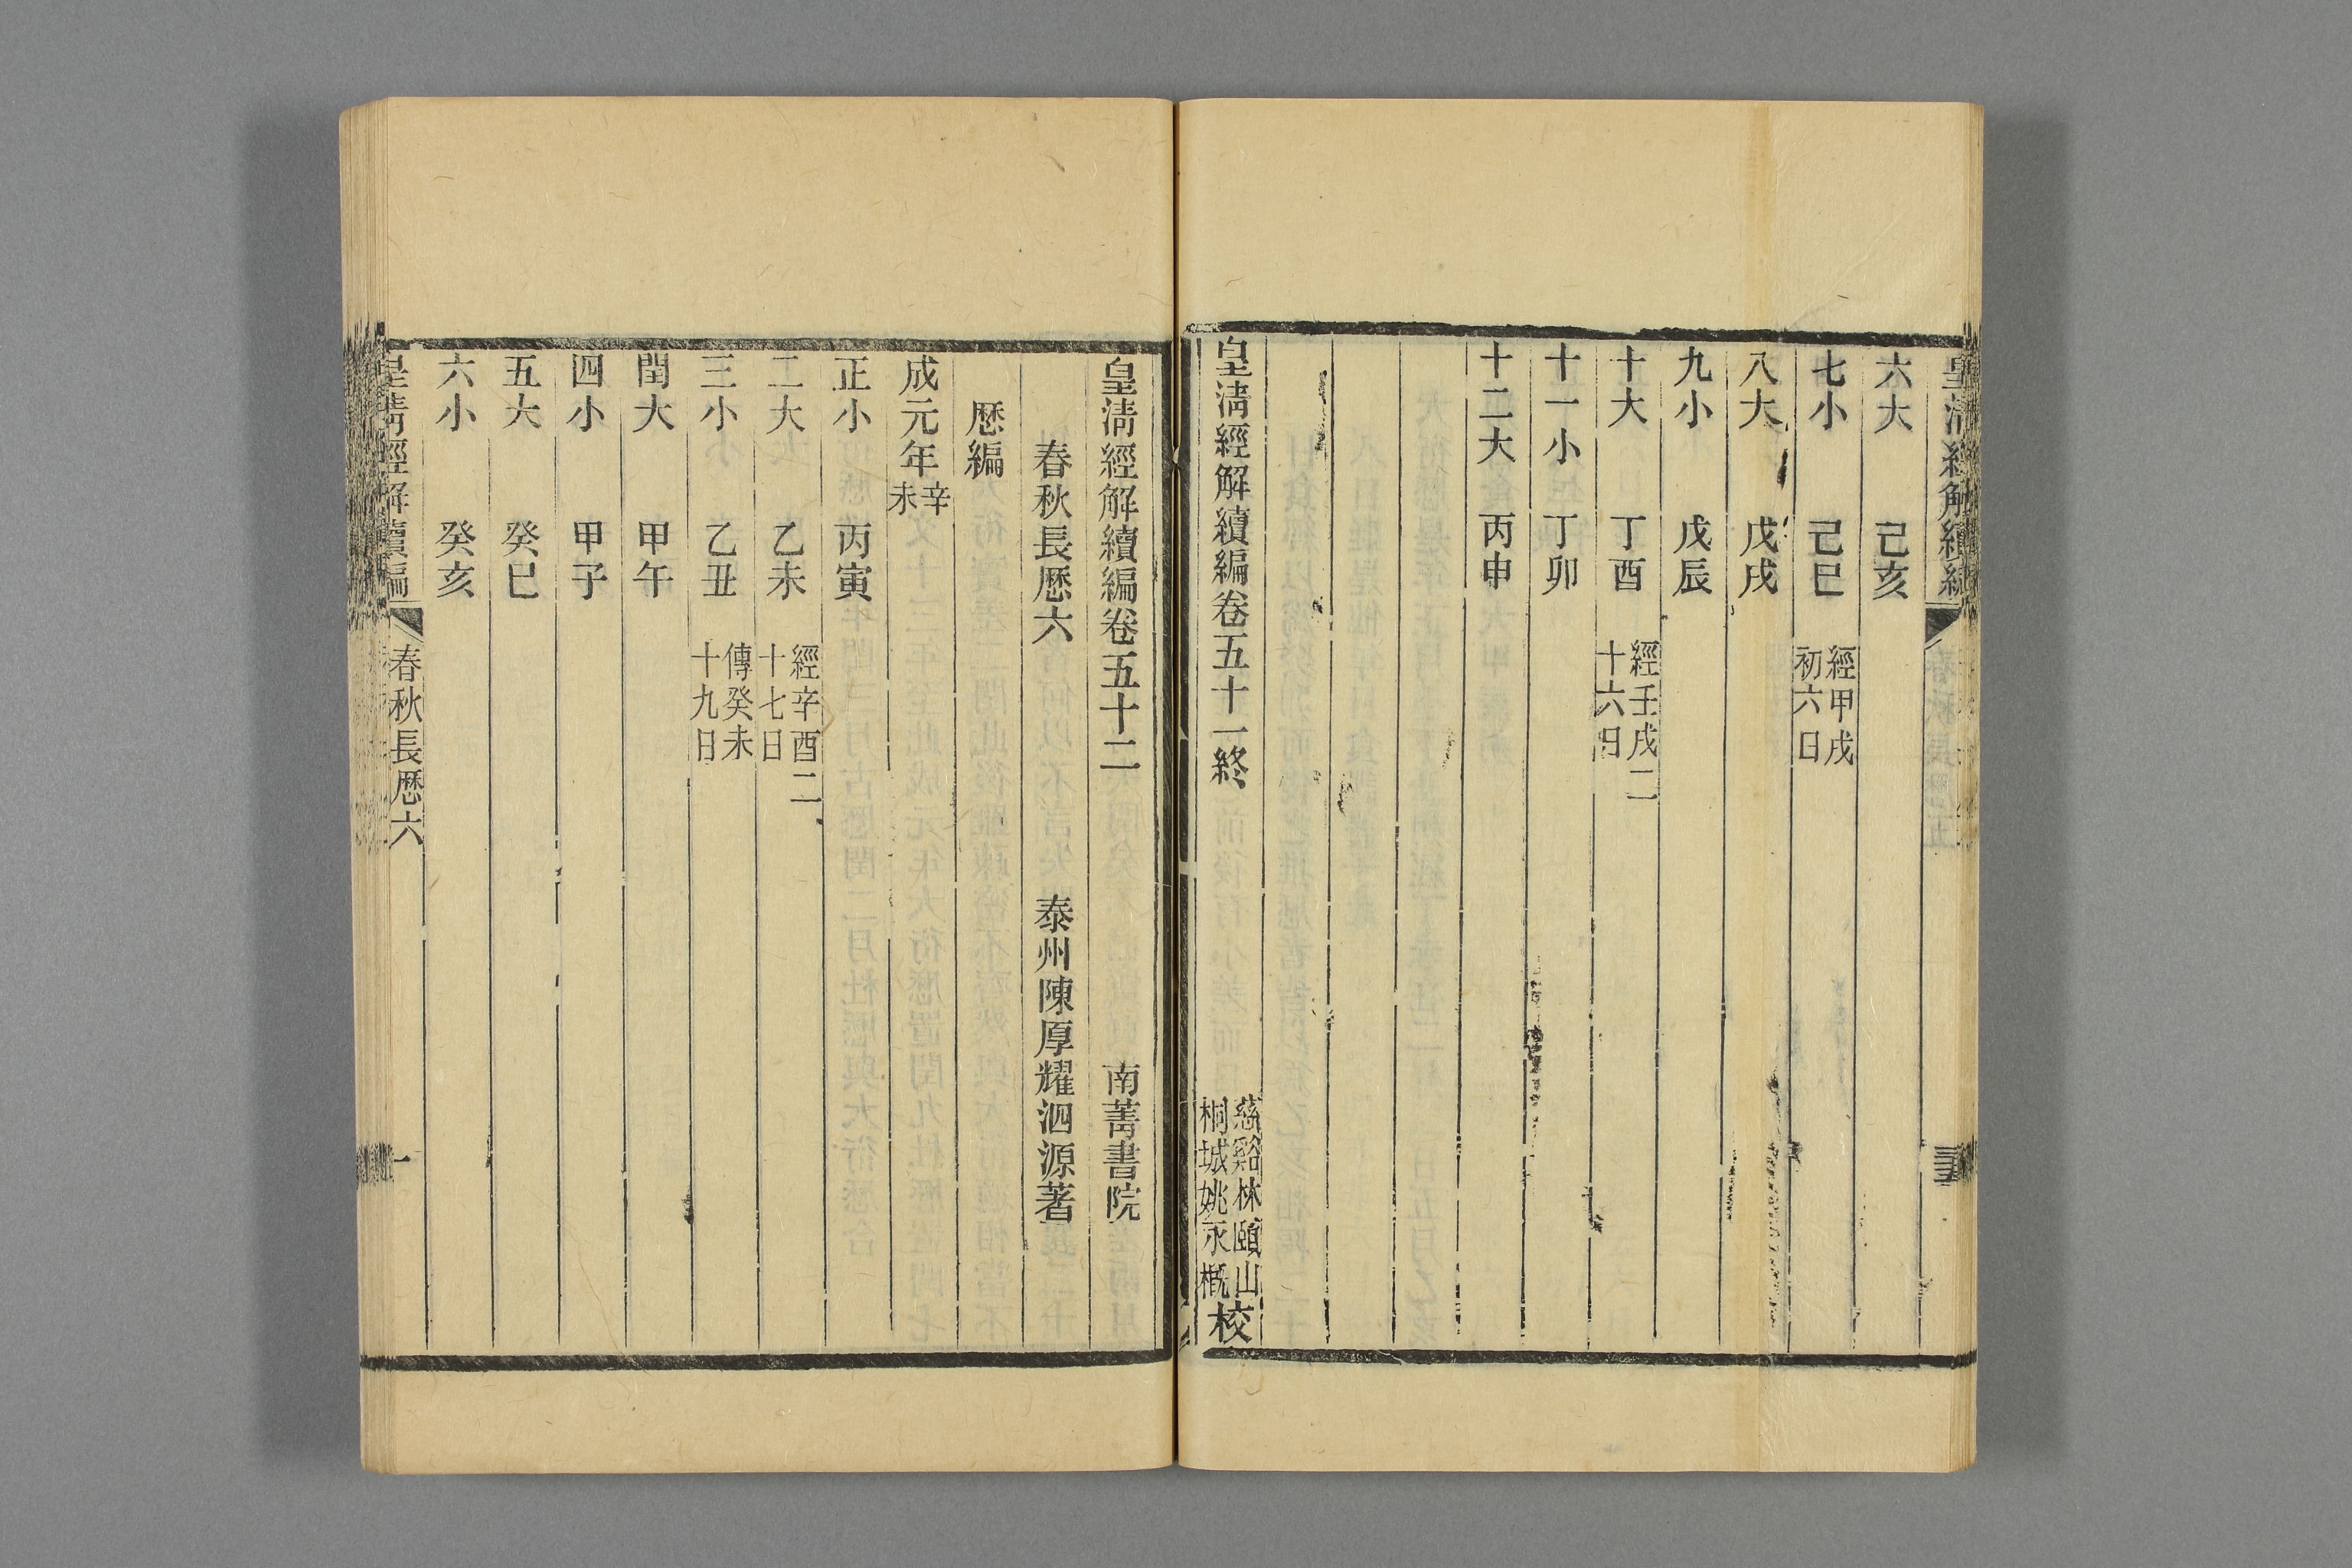 皇清經解續編
春秋長歷五
六大 己亥
七小 己巳 經甲戌
初六日
八大 戊戌
九小 戊辰
十大 丁酉 經壬戌二
十六日
十一小 丁卯
十二大 丙申
皇清經解續編卷五十一終
慈谿林頤山
桐城姚永概
校
皇清經解續編卷五十二 南菁書院
春秋長歷六 泰州陳厚耀泗源著
歷編
成元年辛
未
正小 丙寅
二大 乙未 經辛酉二
十七日
三小 乙丑 傳癸未
十九日
閏大 甲午
四小 甲子
五大 癸巳
六小 癸亥
皇清經解續編 春秋長歷六 一